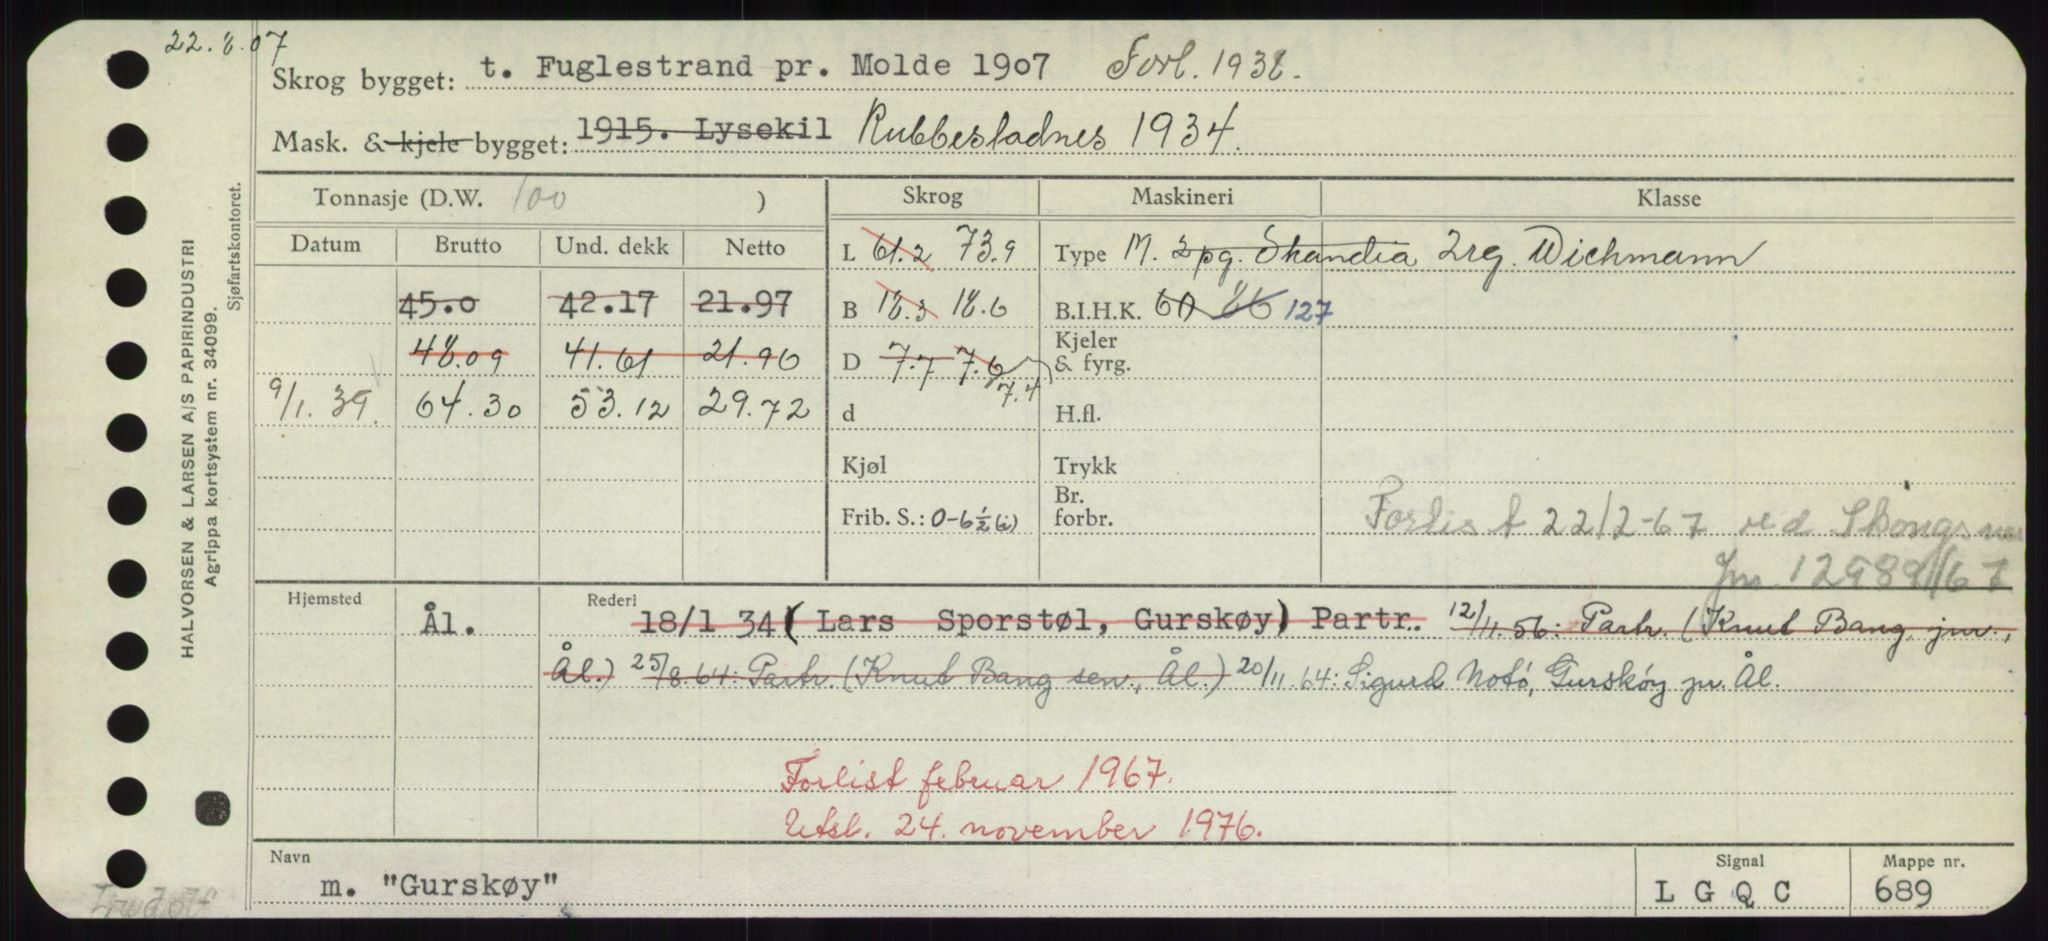 22.8.07
Skrog bygget: t. Fuglestrand pr. Molde 1907 Forl. 1938.
Mask. & kjele bygget: 1915. Lysekil Rubbestadnes 1934.
Tonnasje (D.W. 100 ) Skrog Maskineri Klasse
Datum Brutto Und. dekk Netto L 61.2 73.9 Type M. 2pg. Skandia 2rg. Wichmann
45.0 42.17 21.97 B 18.3 18.6 B.I.H.K. 60 86 127
48.09 41.61 21.96 D 7.7 7.6 7.4 Kjeler & fyrg.
9/1.39. 64.30 53.12 29.72 d H.fl.
Kjøl Trykk
Frib. S.: 0-6½(i) Br. forbr. Forlist 22/2-67 ved
Jnr. 12989/67
Hjemsted Ål. Rederi 18/1 34 (Lars Sporstøl, Gurskøy) Partr. 12/11.56: Partr. (Knut Bang jnr.,
Ål.) 25/8 64: Partr. (Knut Bang sen., Ål.) 20/11.64: Sigurd Notø, Gurskøy pr. Ål.
Forlist februar 1967.
Utsl. 24. november 1976.
Navn Signal Mappe nr.
m. "Gurskøy" L G Q C 689
HALVORSEN & LARSEN A/S PAPIRINDUSTRI
Agrippa kortsystem nr. 34099.
Sjøfartskontoret.